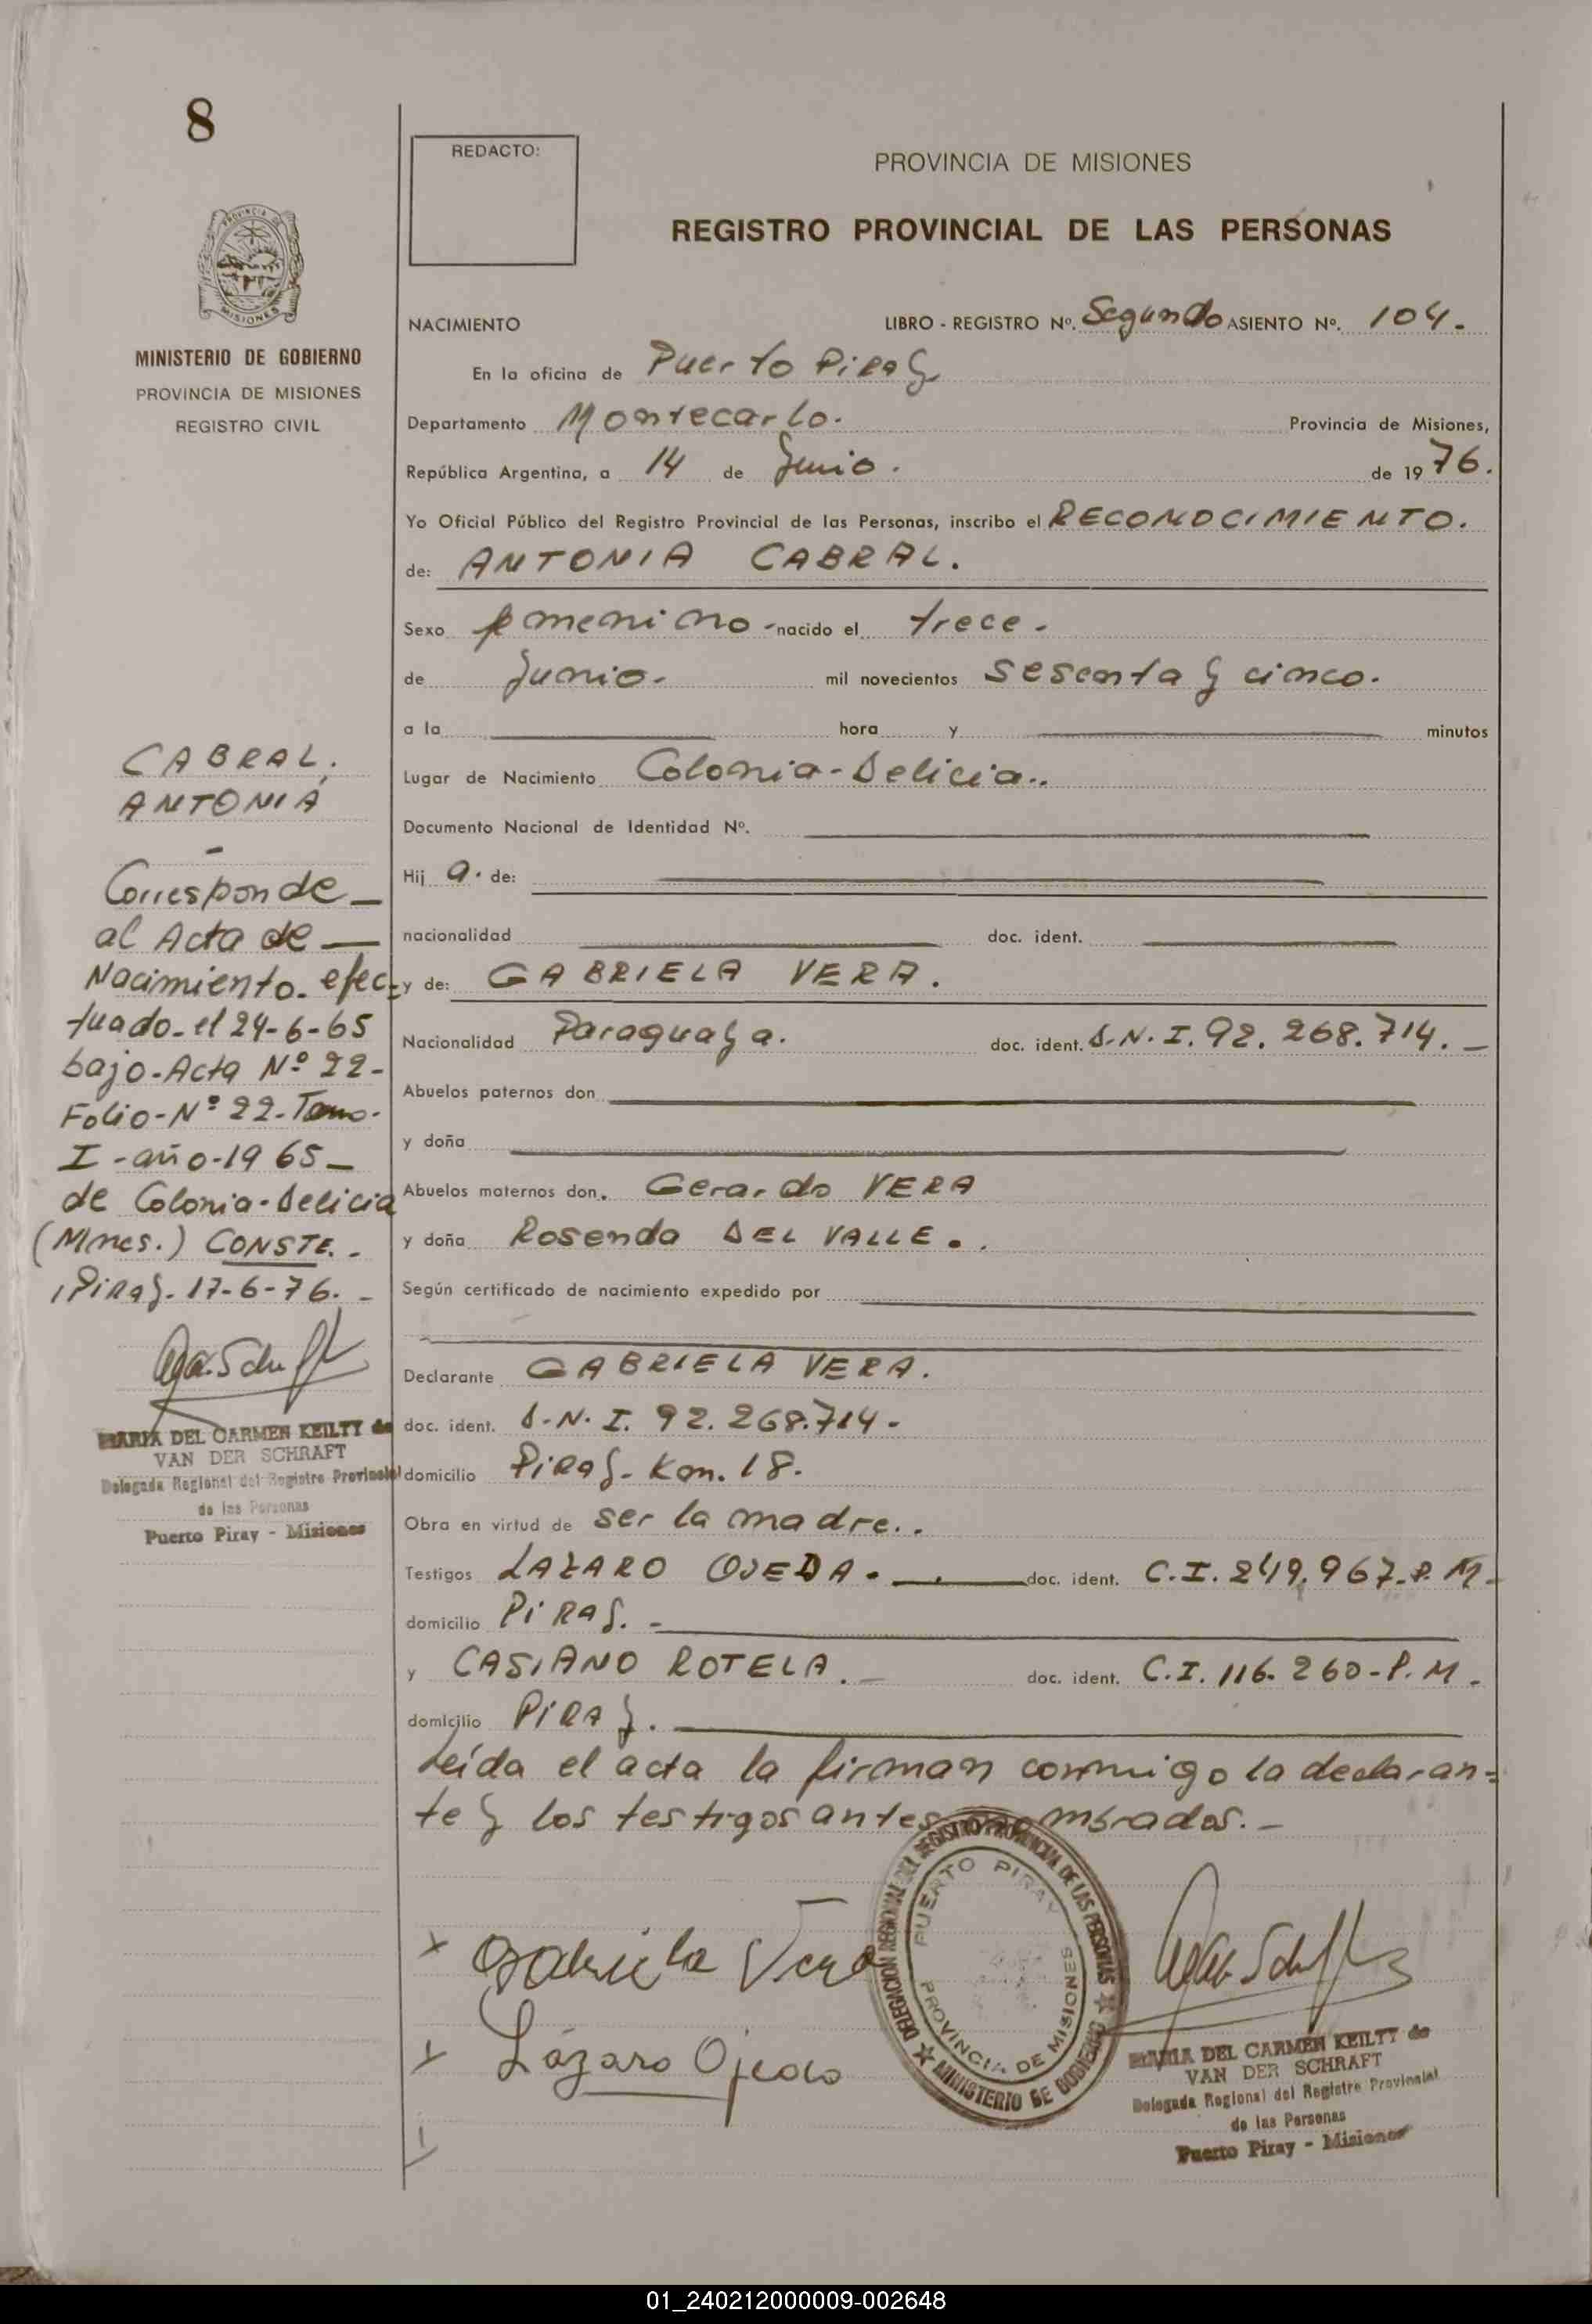 8
REDACTO:
PROVINCIA DE MISIONES
REGISTRO PROVINCIAL DE LAS PERSONAS
MISIONES
MINISTERIO DE GOBIERNO
PROVINCIA DE MISIONES
REGISTRO CIVIL
NACIMIENTO LIBRO - REGISTRO Nº. Segundo ASIENTO Nº. 104.
En la oficina de Puerto Piray
Departamento Montecarlo. Provincia de Misiones,
República Argentina, a 14 de Junio. de 1976.
Yo Oficial Público del Registro Provincial de las Personas, inscribo el RECONOCIMIENTO.
de: ANTONIA CABRAL.
Sexo femenino - nacido el trece.
de Junio. mil novecientos sesenta y cinco.
a la hora y minutos
Lugar de Nacimiento Colonia-Delicia..
Documento Nacional de Identidad Nº.
Hij a. de:
nacionalidad doc. ident.
y de: GABRIELA VERA.
Nacionalidad Paraguaya. doc. ident. D.N.I. 92.268.714.-
Abuelos paternos don
y doña
Abuelos maternos don. Gerardo VERA
y doña Rosenda DEL VALLE..
Según certificado de nacimiento expedido por
Declarante GABRIELA VERA.
doc. ident. D.N.I. 92.268.714-
domicilio Piray- Km. 18.
Obra en virtud de ser la madre..
Testigos LAZARO OJEDA. doc. ident. C.I. 249.967-P.M-
domicilio Piray. -
y CASIANO ROTELA.- doc. ident. C.I. 116.260-P.M.
domicilio Piray.
Leída el acta la firman conmigo la declaran=
te y los testigos antes nombrados.-
CABRAL,
ANTONIA
-
Corresponde-
al Acta de-
Nacimiento- efec=
tuado- el 24-6-65
bajo-Acta Nº 22-
Folio-Nº 22-Tomo-
I -año-1965-
de Colonia-Delicia
(Mnes.) CONSTE.-
Piray- 17-6-76.-
MARIA DEL CARMEN KEILTY de
VAN DER SCHRAFT
Delegada Regional del Registro Provincial
de las Personas
Puerto Piray - Misiones
x Gabriela Vera
x Lázaro Ojeda
DELEGACION REGIONAL DEL REGISTRO PROVINCIAL DE LAS PERSONAS
MINISTERIO DE GOBIERNO
PUERTO PIRAY
PROVINCIA DE MISIONES
MARIA DEL CARMEN KEILTY de
VAN DER SCHRAFT
Delegada Regional del Registro Provincial
de las Personas
Puerto Piray - Misiones
01_240212000009-002648